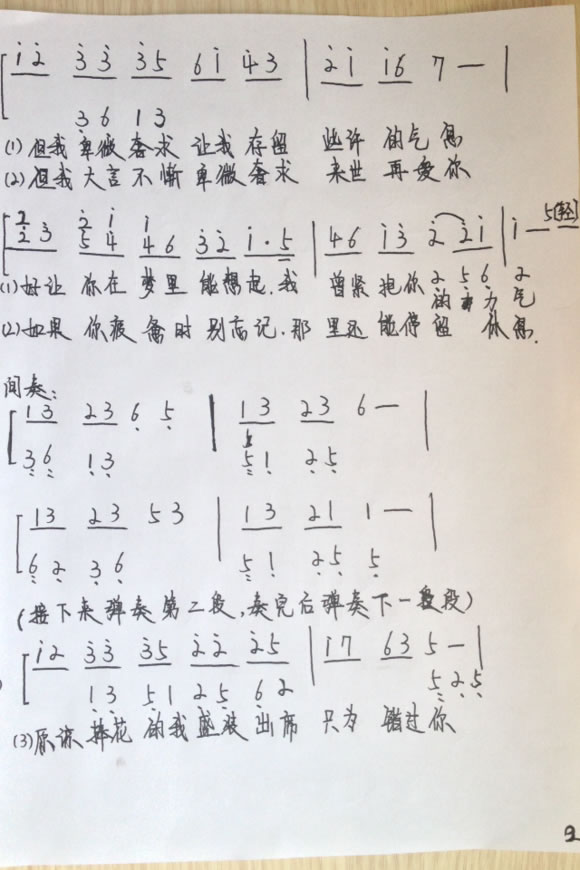 i2 33 35 6i 43 | 2i i6 7 — |
36 13
(1) 但我 卑微 奢求 让我 存留 些许 的气息
(2) 但我 大言 不惭 卑微 奢求 来世 再爱你
2 2 i i 5(轻)
2 3 5 4 4 6 3 2 i · 5 | 4 6 i 3 2 2 i | i —
(1) 好让 你在 梦里 能想起. 我 曾紧 抱你 2 5 6 2
的 力 气
(2) 如果 你疲 时 别忘记. 那 里还 能停留 你
间奏:
13 23 6 5 | 13 23 6 — |
36 13 51 25
13 23 53 | 13 21 1 — |
62 36 51 25 5
(接下来弹奏第二段,奏完后弹奏下一段)
i2 33 35 22 25 | i7 63 5 — |
13 51 25 62 525
(3) 原谅 捧花 的我 盛装 出席 只为 错过你
9